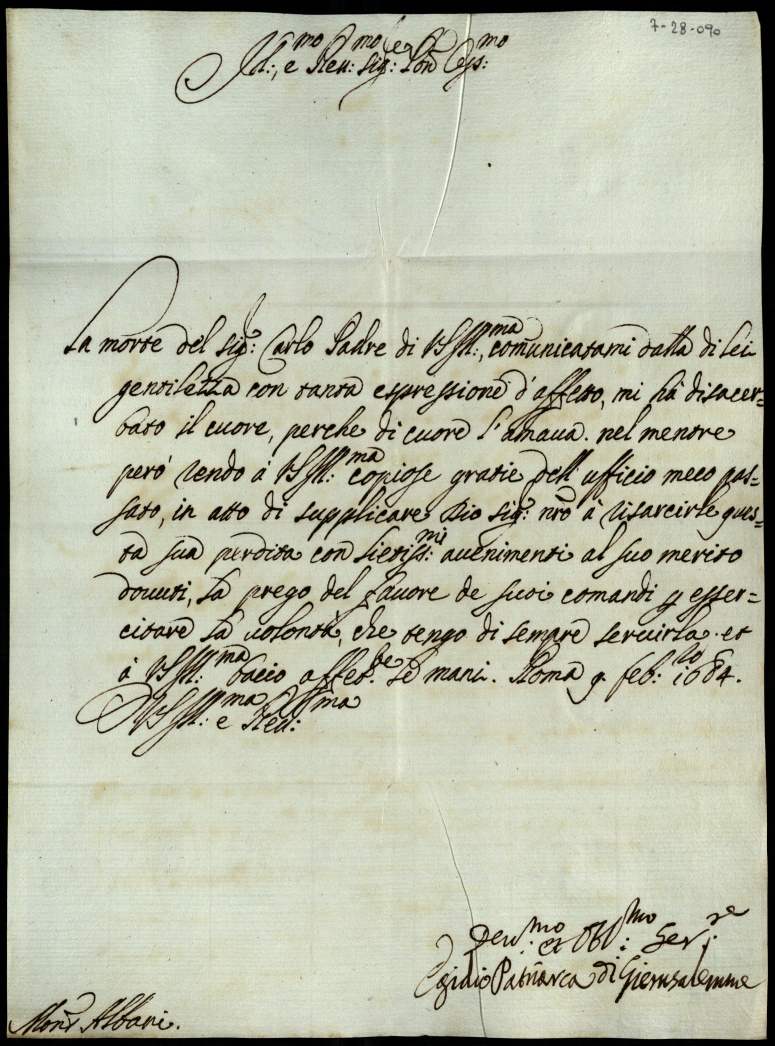 7-28-090
Ill:mo, e Reu:mo Sig:re Prõn Oss:mo
La morte del Sig:r Carlo Padre di VSIll:ma, comũnicatami dalla di lei
gentilezza con tanta espressione d'affetto, mi hà disacer=
bato il cuore, perche di cuore l'amaua. nel mentre
però rendo à VSIll:ma copiose gratie dell'ufficio meco pas=
sato, in atto di supplicare Dio Sig:r nr̃o à risarcirle ques=
ta sua perdita con lietiss:mi auenimenti al suo merito
douuti, la prego del fauore de suoi comandi p esser=
citare la volontà, che tengo di sempre seruirla. et
à VSIll:ma bacio affet:te le mani. Roma 9 feb:ro 1684.
D VSIll:ma e Reu:ma
Deu:mo et Obl:mo Ser:re
Egidio Patriarca di Gierusalemme
Mons:r Albani.